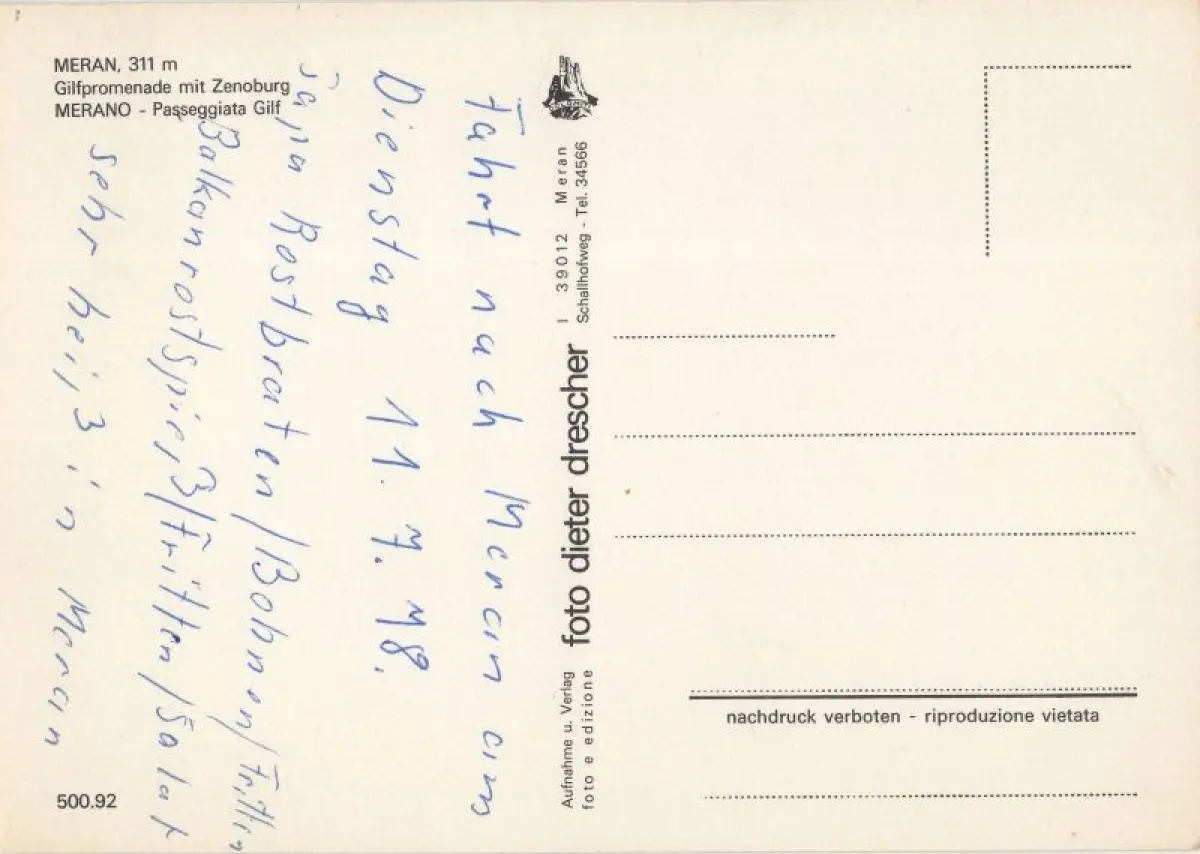 MERAN, 311 m
Gilfpromenade mit Zenoburg
MERANO - Passeggiata Gilf
Fahrt nach Meran am
Dienstag 11. 7. 78.
Rostbraten/Bohnen/Fritten
Balkanrostspieß/Fritten/Salat
sehr heiß in Meran
500.92
I 39012 Meran
Schallhofweg - Tel. 34566
foto dieter drescher
Aufnahme u. Verlag
foto e edizione
nachdruck verboten - riproduzione vietata